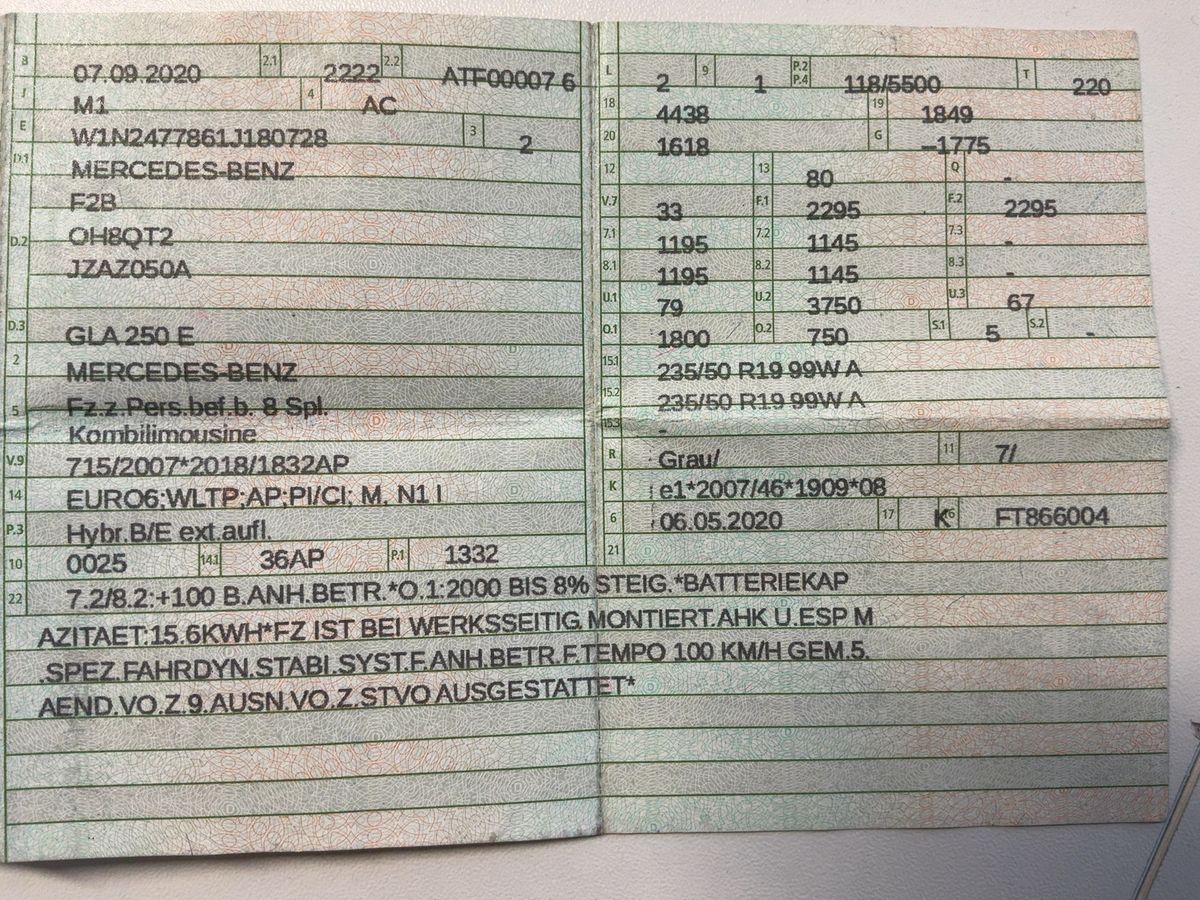 B 07.09.2020 2.1 2222 2.2 ATF00007 6
J M1 4 AC
E W1N2477861J180728 3 2
D.1 MERCEDES-BENZ
F2B
D.2 OH8QT2
JZAZ050A
D.3 GLA 250 E
2 MERCEDES-BENZ
5 Fz.z.Pers.bef.b. 8 Spl.
Kombilimousine
V.9 715/2007*2018/1832AP
14 EURO6;WLTP;AP;PI/CI; M, N1 I
P.3 Hybr.B/E ext.aufl.
10 0025 14.1 36AP P.1 1332
L 2 9 1 P.2 P.4 118/5500 T 220
18 4438 19 1849
20 1618 G –1775
12 13 80 Q -
V.7 33 F.1 2295 F.2 2295
7.1 1195 7.2 1145 7.3 -
8.1 1195 8.2 1145 8.3 -
U.1 79 U.2 3750 U.3 67
O.1 1800 O.2 750 S.1 5 S.2 -
15.1 235/50 R19 99W A
15.2 235/50 R19 99W A
15.3 -
R Grau/ 11 7/
K e1*2007/46*1909*08
6 06.05.2020 17 K 16 FT866004
21
22 7.2/8.2:+100 B.ANH.BETR.*O.1:2000 BIS 8% STEIG.*BATTERIEKAP
AZITAET:15.6KWH*FZ IST BEI WERKSSEITIG MONTIERT.AHK U.ESP M
.SPEZ.FAHRDYN.STABI.SYST.F.ANH.BETR.F.TEMPO 100 KM/H GEM.5.
AEND.VO.Z.9.AUSN.VO.Z.STVO AUSGESTATTET*